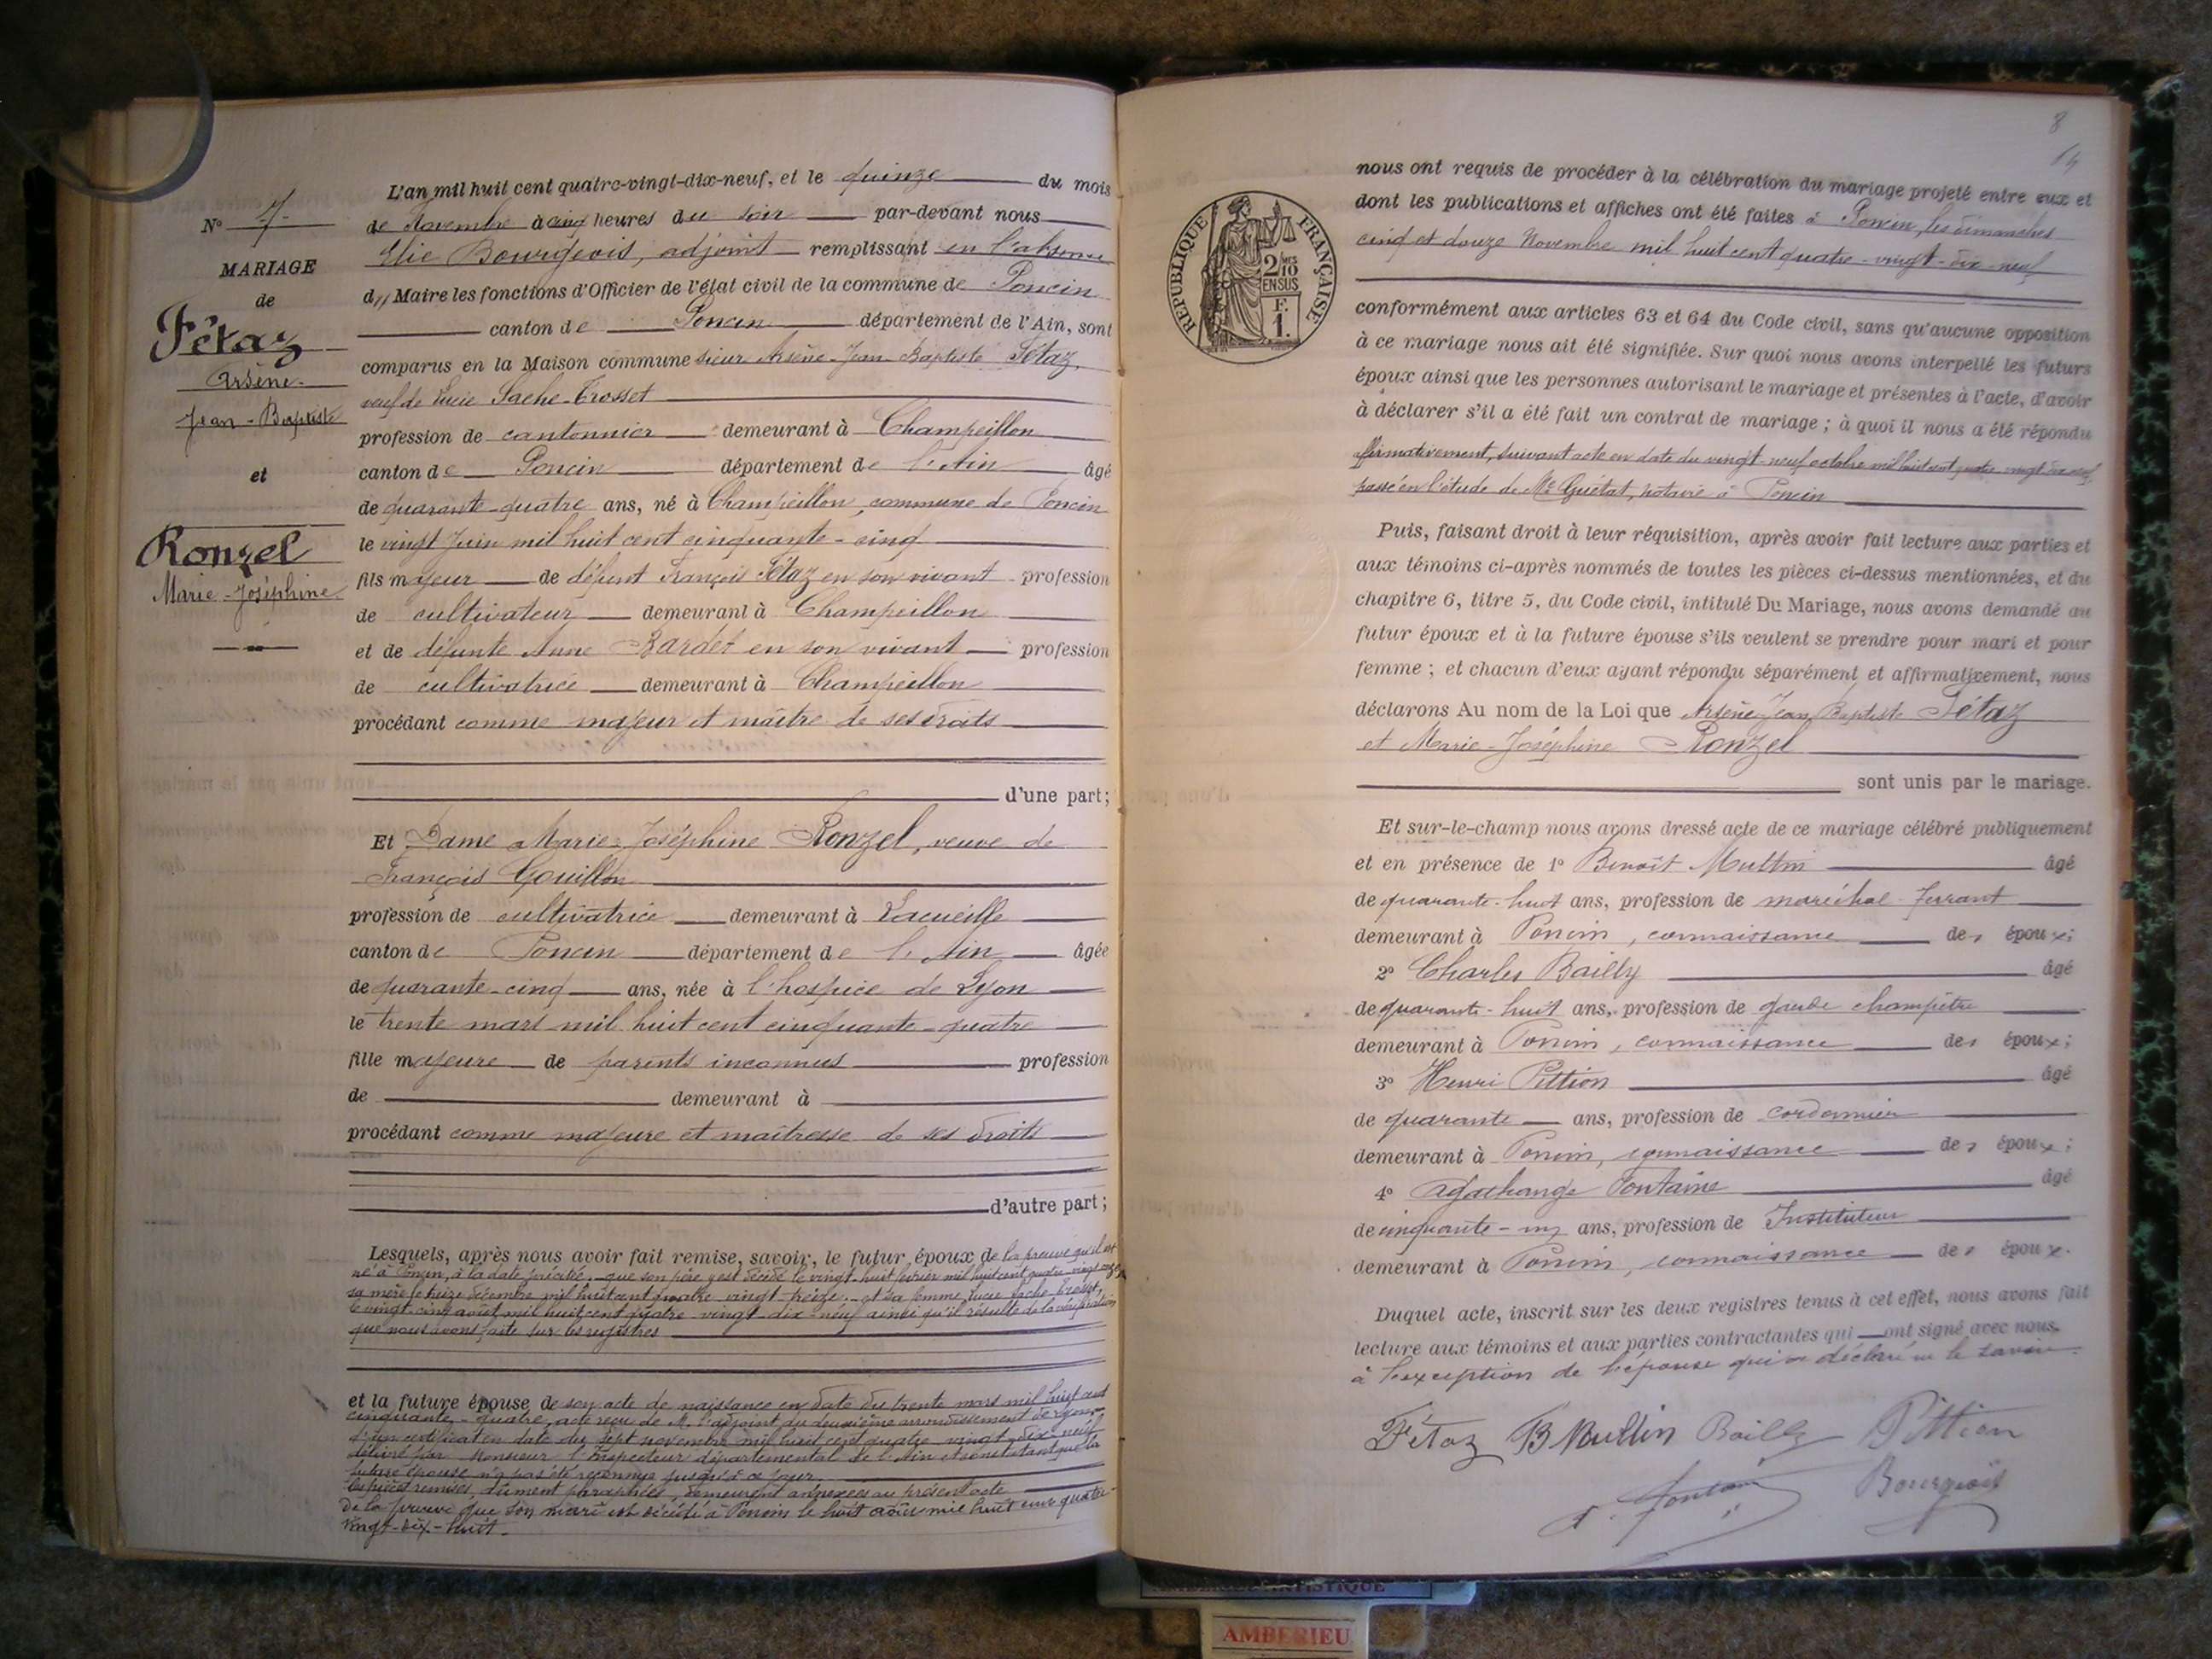 N° 7
MARIAGE
de
Fétaz
Arsène
Jean-Baptiste
et
Ronzel
Marie-Joséphine
L'an mil huit cent quatre-vingt-dix-neuf, et le quinze du mois
de Novembre à cinq heures du soir par-devant nous
Elie Bourgeois, adjoint remplissant en l'absence
d,, Maire les fonctions d'Officier de l'état civil de la commune de Poncin
canton de Poncin département de l'Ain, sont
comparus en la Maison commune sieur Arsène-Jean Baptiste Fétaz,
veuf de Lucie Sache-Trosset
profession de cantonnier demeurant à Champeillon
canton de Poncin département de l'Ain âgé
de quarante-quatre ans, né à Champeillon, commune de Poncin
le vingt Juin mil huit cent cinquante-cinq
fils majeur de défunt François Fétaz en son vivant profession
de cultivateur demeurant à Champeillon
et de défunte Anne Bardet en son vivant profession
de cultivatrice demeurant à Champeillon
procédant comme majeur et maître de ses droits
d'une part;
Et Dame Marie-Joséphine Ronzel, veuve de
François Gouillon
profession de cultivatrice demeurant à
canton de Poncin département de l'Ain âgée
de quarante-cinq ans, née à l'hospice de Lyon
le trente mars mil huit cent cinquante-quatre
fille majeure de parents inconnus profession
de demeurant à
procédant comme majeure et maîtresse de ses droits
d'autre part;
Lesquels, après nous avoir fait remise, savoir, le futur époux de la preuve qu'il est
né à Poncin, à la date précitée, que son père y est décédé le vingt-huit février mil huit cent quatre-vingt
sa mère le treize décembre mil huit cent quatre-vingt-treize et sa femme Lucie Sache-Trosset,
le vingt-cinq août mil huit cent quatre-vingt-dix-neuf ainsi qu'il résulte de la vérification
que nous avons faite sur les registres
et la future épouse de son acte de naissance en date du trente mars mil huit cent
cinquante-quatre, acte reçu de M. l'adjoint du deuxième arrondissement de Lyon,
d'un certificat en date du sept novembre mil huit cent quatre-vingt-dix-neuf
délivré par Monsieur l'Inspecteur départemental de l'Ain et constatant que la
future épouse n'a pas été reconnue jusqu'à ce jour.
Les pièces remises, dûment paraphées, demeurent annexées au présent acte
De la preuve que son mari est décédé à Poncin le huit août mil huit cent quatre-
vingt-dix-huit.
8
14
RÉPUBLIQUE FRANÇAISE
2/10
EN SUS
F.
1.
nous ont requis de procéder à la célébration du mariage projeté entre eux et
dont les publications et affiches ont été faites à Poncin, les dimanches
cinq et douze Novembre mil huit cent quatre-vingt-dix-neuf
conformément aux articles 63 et 64 du Code civil, sans qu'aucune opposition
à ce mariage nous ait été signifiée. Sur quoi nous avons interpellé les futurs
époux ainsi que les personnes autorisant le mariage et présentes à l'acte, d'avoir
à déclarer s'il a été fait un contrat de mariage ; à quoi il nous a été répondu
affirmativement, suivant acte en date du vingt-neuf octobre mil huit cent quatre-vingt dix-neuf,
passé en l'étude de Me Guétat, notaire à Poncin
Puis, faisant droit à leur réquisition, après avoir fait lecture aux parties et
aux témoins ci-après nommés de toutes les pièces ci-dessus mentionnées, et du
chapitre 6, titre 5, du Code civil, intitulé Du Mariage, nous avons demandé au
futur époux et à la future épouse s'ils veulent se prendre pour mari et pour
femme ; et chacun d'eux ayant répondu séparément et affirmativement, nous
déclarons Au nom de la Loi que Arsène Jean Baptiste Fétaz
et Marie-Joséphine Ronzel
sont unis par le mariage.
Et sur-le-champ nous avons dressé acte de ce mariage célébré publiquement
et en présence de 1° Benoît Multin âgé
de quarante-huit ans, profession de maréchal-ferrant
demeurant à Poncin, connaissance des époux;
2° Charles Bailly âgé
de quarante-huit ans, profession de garde champêtre
demeurant à Poncin, connaissance des époux;
3° Henri Pittion âgé
de quarante ans, profession de cordonnier
demeurant à Poncin, connaissance des époux;
4° Agathange Fontaine âgé
de cinquante-un ans, profession de Instituteur
demeurant à Poncin, connaissance des époux.
Duquel acte, inscrit sur les deux registres tenus à cet effet, nous avons fait
lecture aux témoins et aux parties contractantes qui ont signé avec nous
à l'exception de l'épouse qui a déclaré ne le savoir.
Fétaz B Multin Bailly Pittion
Bourgeois
AMBERIEU